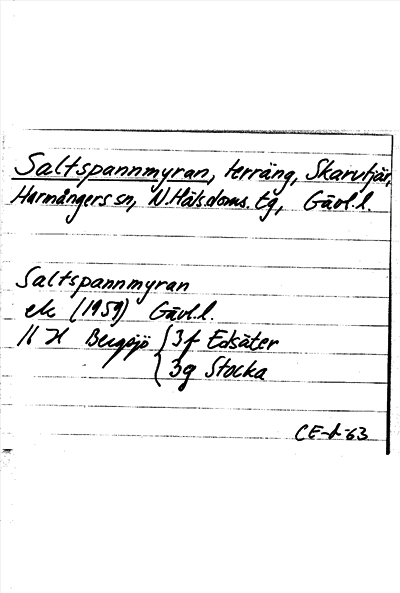 Saltspannmyran, terräng, Skarvtjär,
Harmångers sn, N.Häls.doms. tg, Gävl.l.
Saltspannmyran
ek (1959) Gävl.l.
16 H Bergsjö 3f Edsäter
3g Stocka
CE-t-63